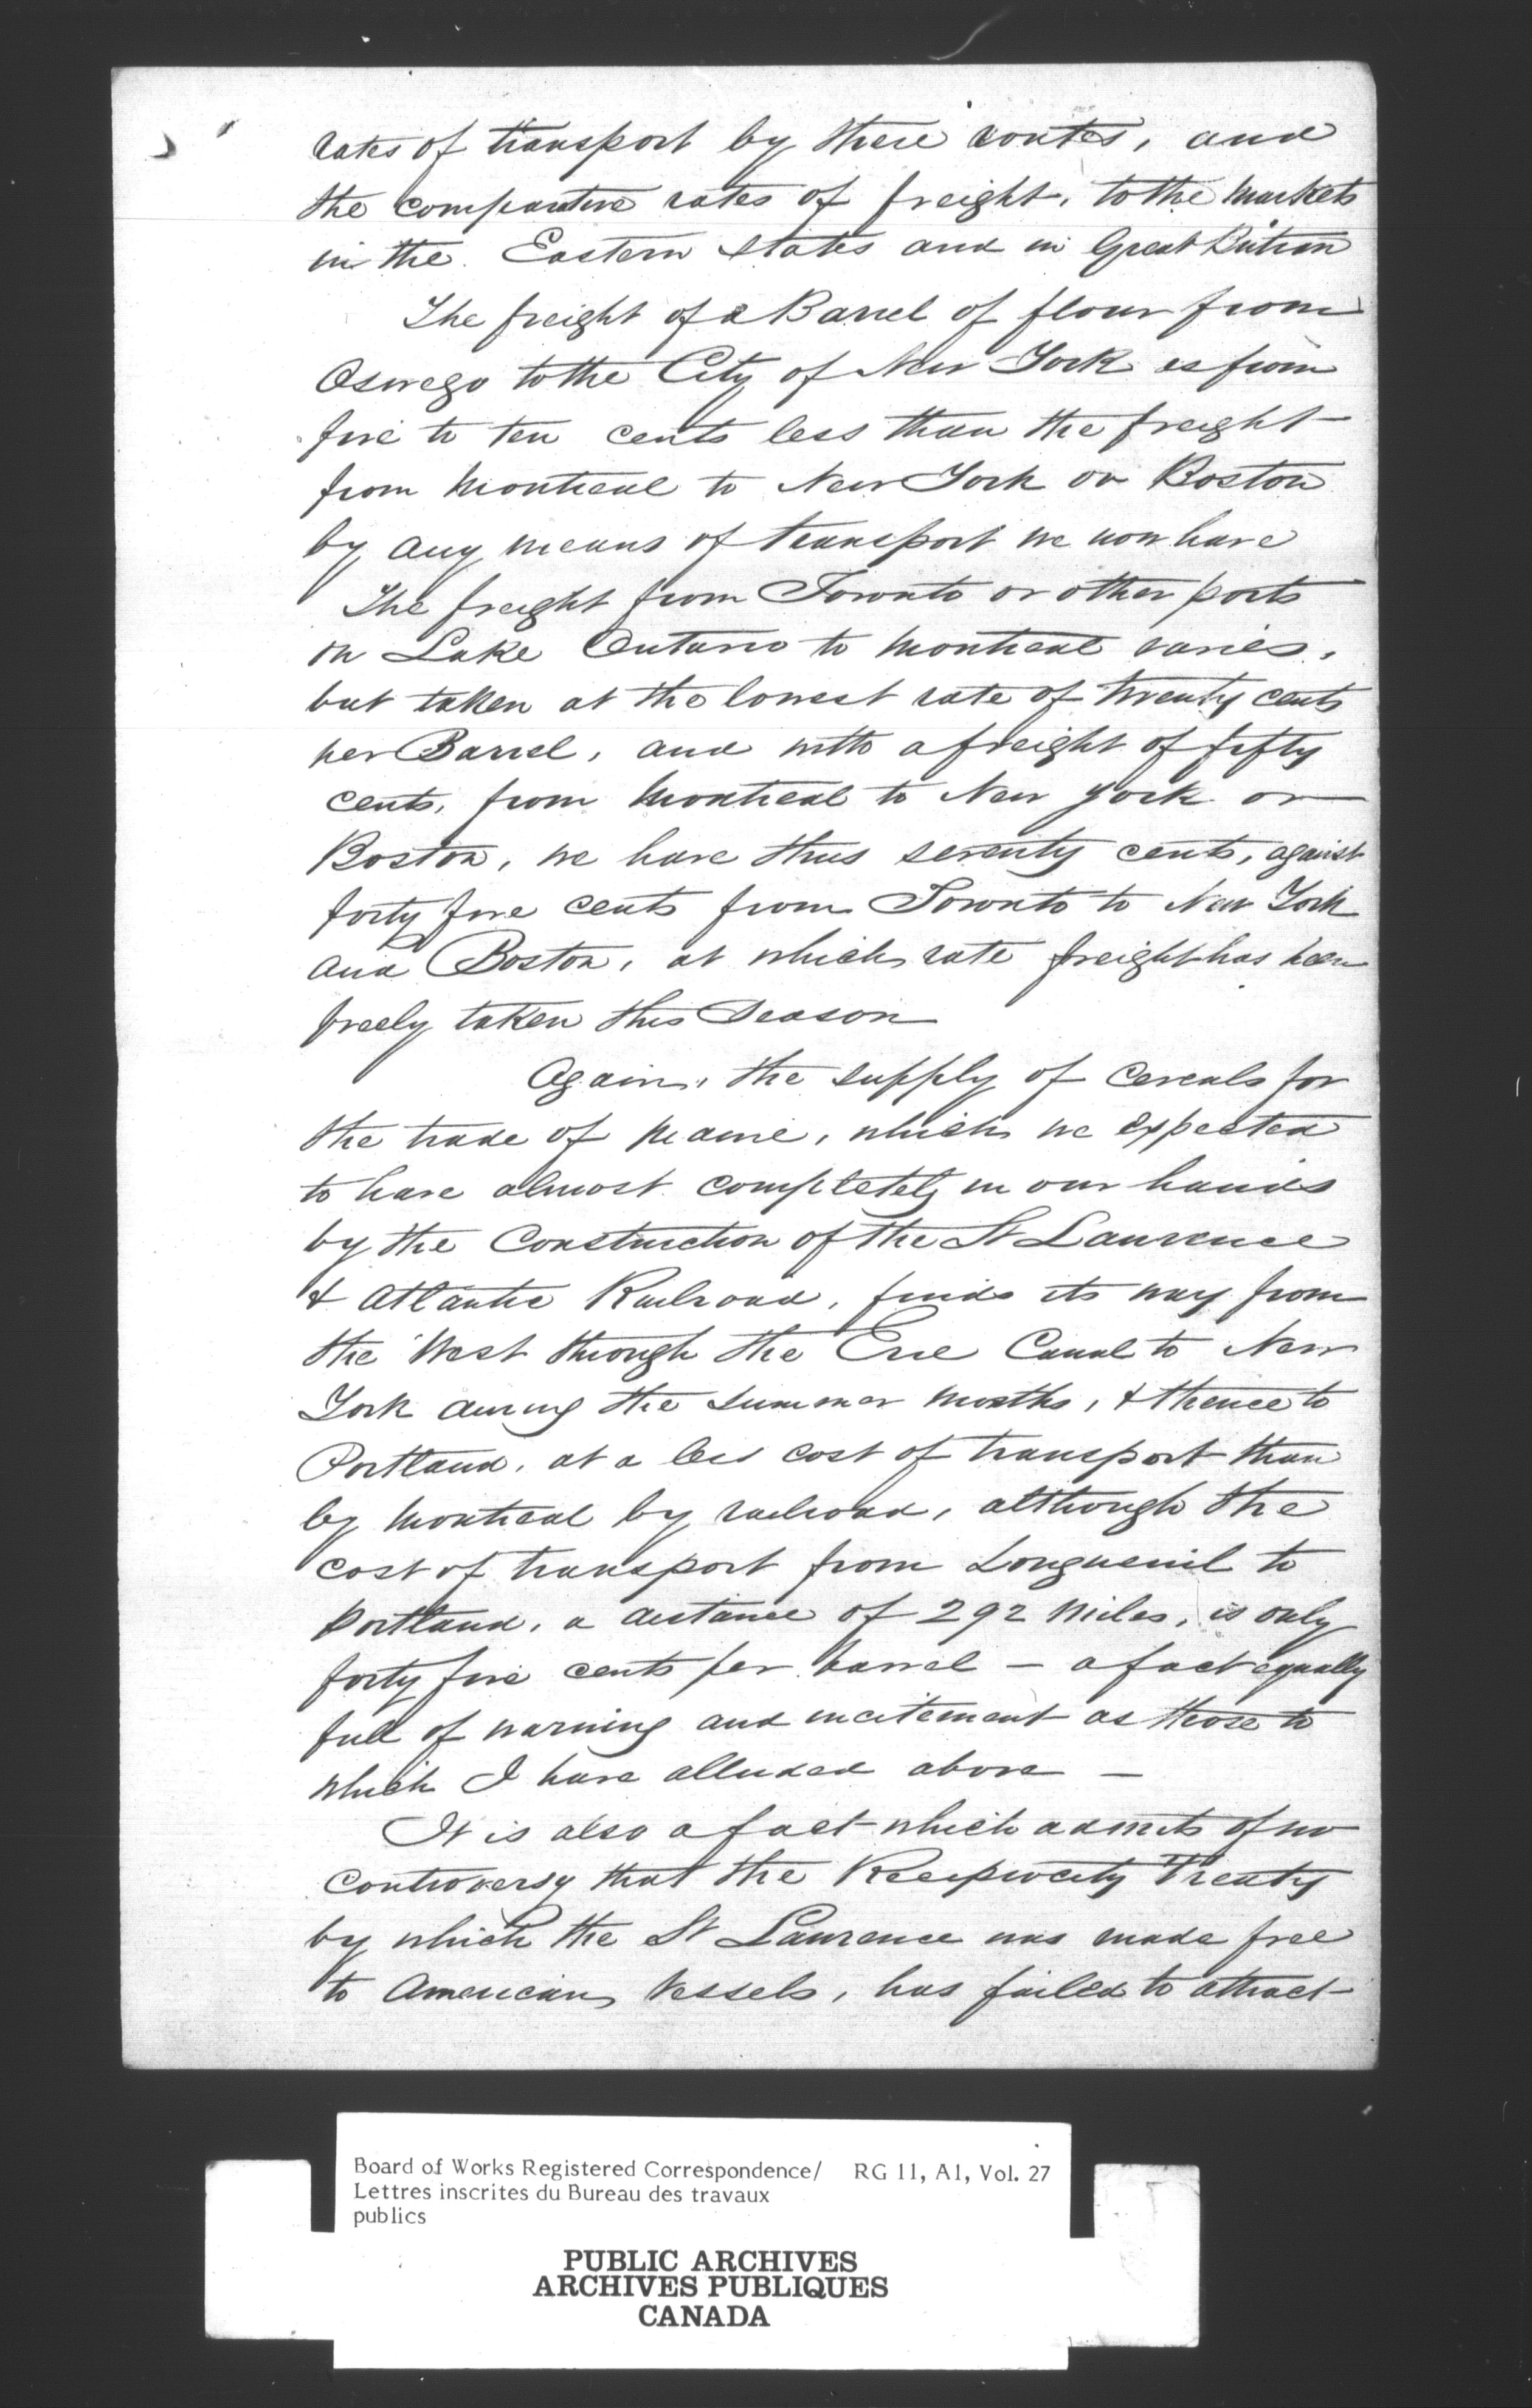 rates of transport by these routes, and
the comparative rates of freight, to the markets
in the Eastern States and in Great Britian
The freight of a Barrel of flour from
Oswego to the City of New York is from
five to ten cents less than the freight
from Montreal to New York or Boston
by any means of transport we now have
The freight from Toronto or other ports
on Lake Ontario to Montreal varies,
but taken at the lowest rate of twenty cents
per Barrel, and with a freight of fifty
cents, from Montreal to New York or
Boston, we have thus seventy cents, against
forty five cents from Toronto to New York
and Boston, at which rate freight has been
freely taken this Season
Again, the supply of Cereals for
the trade of Maine, which we expected
to have almost completely in our hands
by the Construction of the St Lawrence
& Atlantic Railroad, finds its way from
the West through the Erie Canal to New
York during the summer months, & thence to
Portland, at a less cost of transport than
by Montreal by railroad, although the
cost of transport from Longueuil to
Portland, a distance of 292 miles, is only
forty five cents per barrel — a fact equally
full of warning and incitement as those to
which I have alluded above —
It is also a fact which admits of no
controversy that the Reciprocity Treaty
by which the St Lawrence was made free
to American Vessels, has failed to attract
Board of Works Registered Correspondence/ RG 11, A1, Vol. 27
Lettres inscrites du Bureau des travaux
publics
PUBLIC ARCHIVES
ARCHIVES PUBLIQUES
CANADA